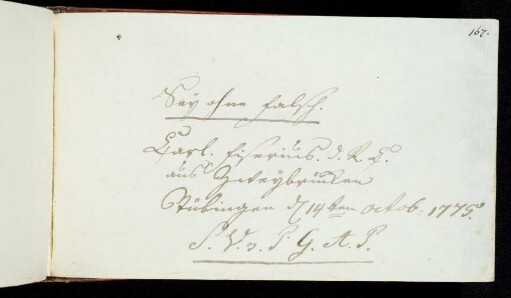 167.
Sey ohne falsch.
Carl. Eiserius. d. R. C.
aus Zweybrücken
Tübingen d 14ten octob: 1775.
S. V. s. S G. A. S.